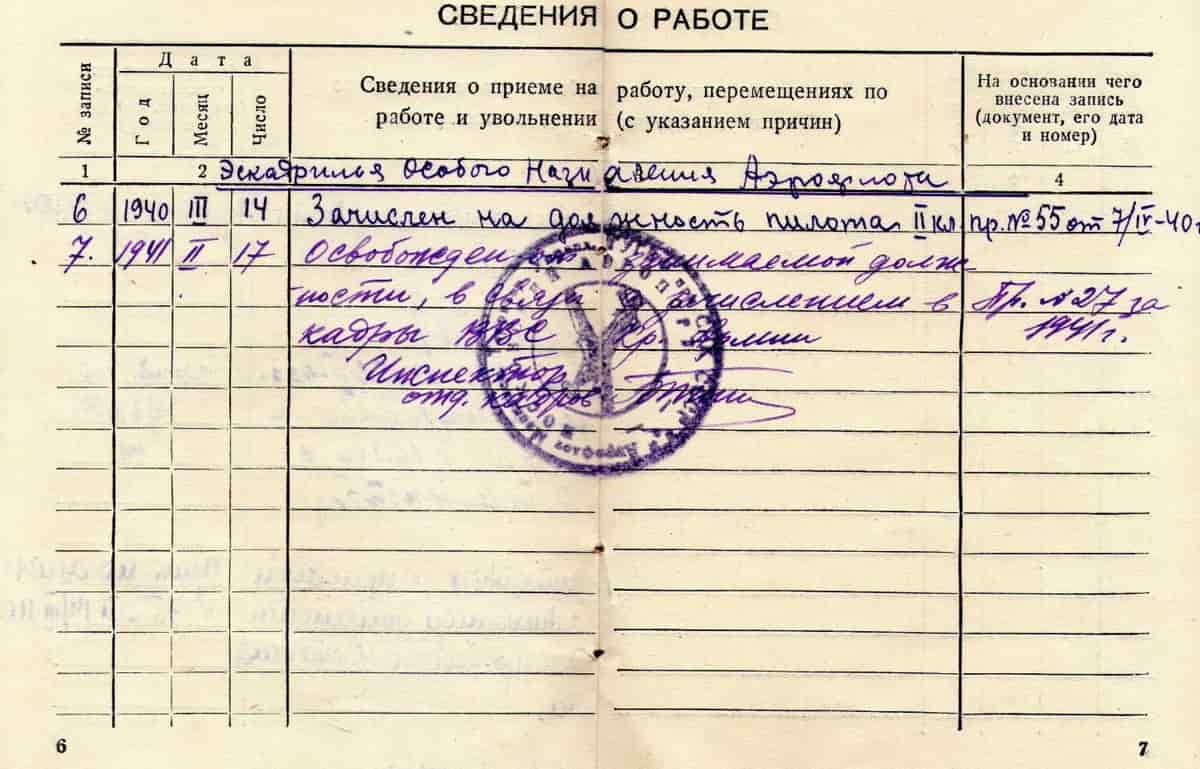 СВЕДЕНИЯ О РАБОТЕ
№ записи
Дата
Год
Месяц
Число
Сведения о приеме на работу, перемещениях по
работе и увольнении (с указанием причин)
На основании чего
внесена запись
(документ, его дата
и номер)
1 2 3 4
Эскадрилья Особого Назначения Аэрофлота
6 1940 III 14 Зачислен на должность пилота II кл пр. № 55 от 7/IV-40г
7. 1941 II 17 Освобожден от занимаемой долж
ности, в связи с зачислением в Пр. № 27 за
кадры ВВС Кр. Армии 1941 г.
Инспектор
отд. кадров
6 7